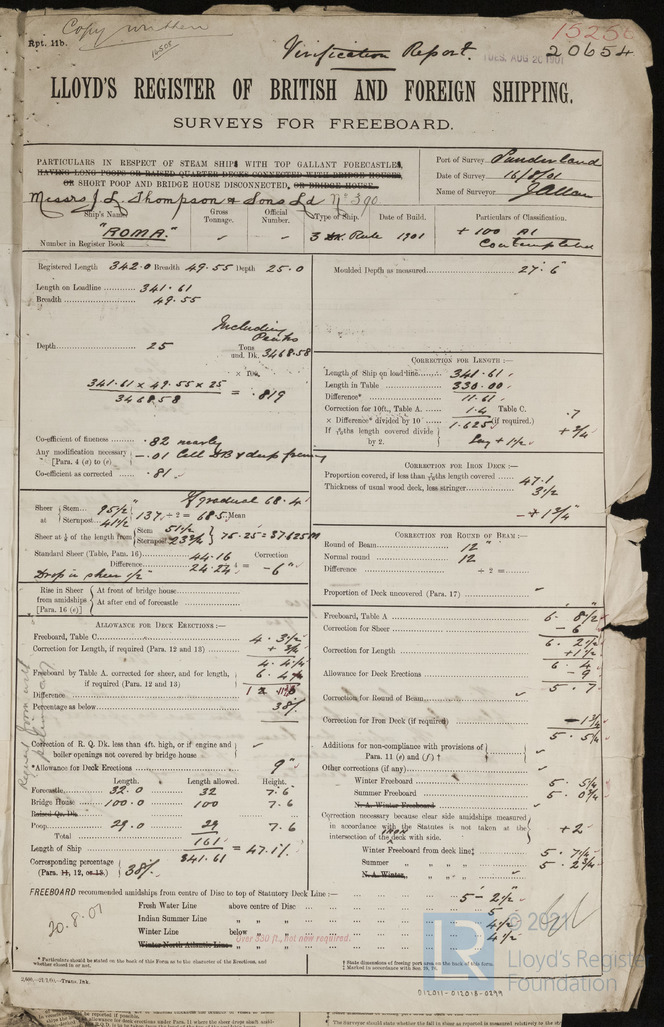 Copy written
15256
Rpt. 11b.
16505
Verification Report.
TUES. AUG 20 1901
20654
LLOYD'S REGISTER OF BRITISH AND FOREIGN SHIPPING.
SURVEYS FOR FREEBOARD.
PARTICULARS IN RESPECT OF STEAM SHIPS WITH TOP GALLANT FORECASTLES,
HAVING LONG POOPS OR RAISED QUARTER DECKS CONNECTED WITH BRIDGE HOUSES,
OR SHORT POOP AND BRIDGE HOUSE DISCONNECTED, OR BRIDGE HOUSE.
Port of Survey Sunderland
Date of Survey 16/8/01
Name of Surveyor J Allan
Messrs J. L. Thompson & Sons Ld No 390
Ship's Name
Gross Tonnage.
Official Number.
Type of Ship.
Date of Build.
Particulars of Classification.
"ROMA."
Number in Register Book
3 Dk. Rule 1901
+ 100 A1
Contemplated
Registered Length 342.0 Breadth 49.55 Depth 25.0
Moulded Depth as measured 27' 6"
Length on Loadline 341.61
Breadth 49.55
Including Peaks
Depth 25
Tons und. Dk. 3468.58
× 100.
341.61 × 49.55 × 25 = .819
3468.58
Co-efficient of fineness .82 nearly
Any modification necessary [Para. 4 (a) to (e)] -.01 Cell DB & deep framing
Co-efficient as corrected .81
CORRECTION FOR LENGTH :—
Length of Ship on load-line 341.61
Length in Table 330.00
Difference* 11.61
Correction for 10ft., Table A. 1.4 Table C. .7
× Difference* divided by 10 1.625 (if required.) + 3/4
If 6/10ths length covered divide by 2. Say + 1 1/2
CORRECTION FOR IRON DECK :—
Proportion covered, if less than 7/10ths length covered 47.1
Thickness of usual wood deck, less stringer 3 1/2
- 1 3/4"
If gradual 68.4
Sheer at Stem 95 1/2" Sternpost 41 1/2 137 ÷ 2 = 68.5 Mean
Sheer at 1/8 of the length from Stem 51 1/2 Sternpost 23 3/4 75.25 = 37.625 M
Standard Sheer (Table, Para. 16) 44.16 Correction
Difference 24.24 = -6"
Drop in sheer 1/2
Rise in Sheer from amidships [Para. 16 (e)]
At front of bridge house
At after end of forecastle
CORRECTION FOR ROUND OF BEAM:—
Round of Beam 12"
Normal round 12
Difference ÷ 2 =
Proportion of Deck uncovered (Para. 17)
ALLOWANCE FOR DECK ERECTIONS :—
Freeboard, Table C 4. 3 1/2
Correction for Length, if required (Para. 12 and 13) + 3/4
4. 4 1/4
Freeboard by Table A. corrected for sheer, and for length, if required (Para. 12 and 13)
Difference
Percentage as below 38%
Correction of R. Q. Dk. less than 4ft. high, or if engine and boiler openings not covered by bridge house
*Allowance for Deck Erections 9"
Length. Length allowed. Height.
Forecastle 32.0 32 7.6
Bridge House 100.0 100 7.6
Raised Qr. Dk.
Poop 29.0 29 7.6
Total 161
Length of Ship 341.61 = 47.1%
Corresponding percentage (Para. 11, 12, or 13.) 38%
Freeboard, Table A 6. 8 1/2
Correction for Sheer - 6
6. 2 1/2
Correction for Length + 1 1/2
6. 4
Allowance for Deck Erections - 9
5. 7
Correction for Round of Beam
Correction for Iron Deck (if required) - 1 3/4
5. 5 1/4
Additions for non-compliance with provisions of Para. 11 (e) and (f) †
Other corrections (if any)
Winter Freeboard 5. 5 1/4
Summer Freeboard 5. 0 3/4
N. A. Winter Freeboard
Correction necessary because clear side amidships measured in accordance with the Statutes is not taken at the intersection of the IRON deck with side. + 2
Winter Freeboard from deck line‡ 5. 7 1/4
Summer " " " " 5. 2 3/4
N. A. Winter " " "
FREEBOARD recommended amidships from centre of Disc to top of Statutory Deck Line :— 5 - 2 1/2
Fresh Water Line above centre of Disc 5
Indian Summer Line " " 4 1/2
Winter Line below " " 4 1/2
Winter North Atlantic Line " "
Over 330 ft., not now required.
20.8.01
* Particulars should be stated on the back of this Form as to the character of the Erections, and whether closed in or not.
† State dimensions of freeing port area on the back of this form.
2,000,—21/2/01,—Trans. Ink.
LR
© 2021
Lloyd's Register
Foundation
012011-012018-0299